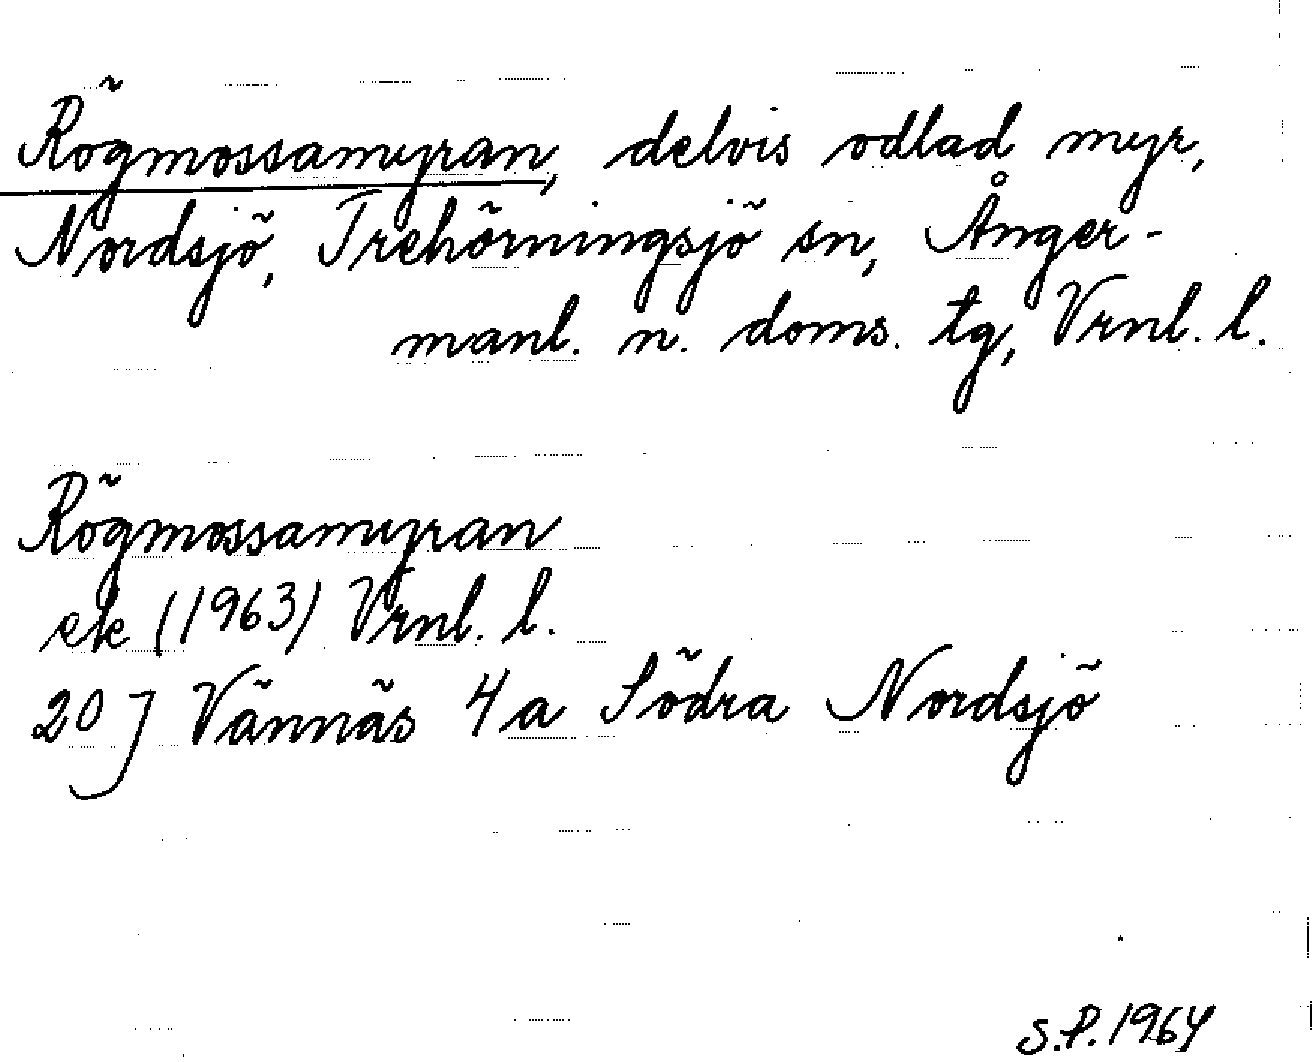 Rögmossamyran, delvis odlad myr,
Nordsjö, Trehörningsjö sn, Ånger-
manl. n. doms. tg, Vrnl. l.
Rögmossamyran
ek (1963) Vrnl. l.
20J Vännäs 4a Södra Nordsjö
S.P. 1964